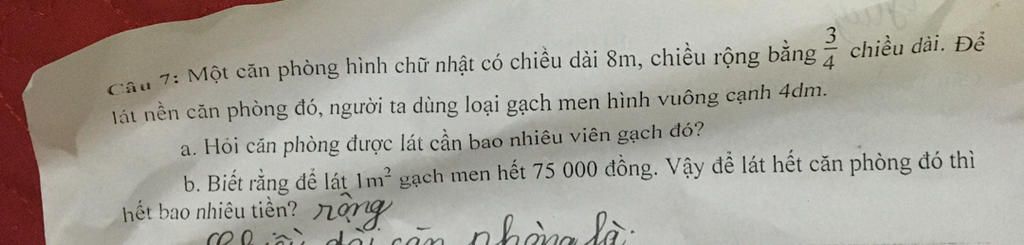 Câu 7: Một căn phòng hình chữ nhật có chiều dài 8m, chiều rộng bằng 3/4 chiều dài. Để
lát nền căn phòng đó, người ta dùng loại gạch men hình vuông cạnh 4dm.
a. Hỏi căn phòng được lát cần bao nhiêu viên gạch đó?
b. Biết rằng để lát 1m² gạch men hết 75 000 đồng. Vậy để lát hết căn phòng đó thì
hết bao nhiêu tiền? rộng
Chiều dài căn phòng là: